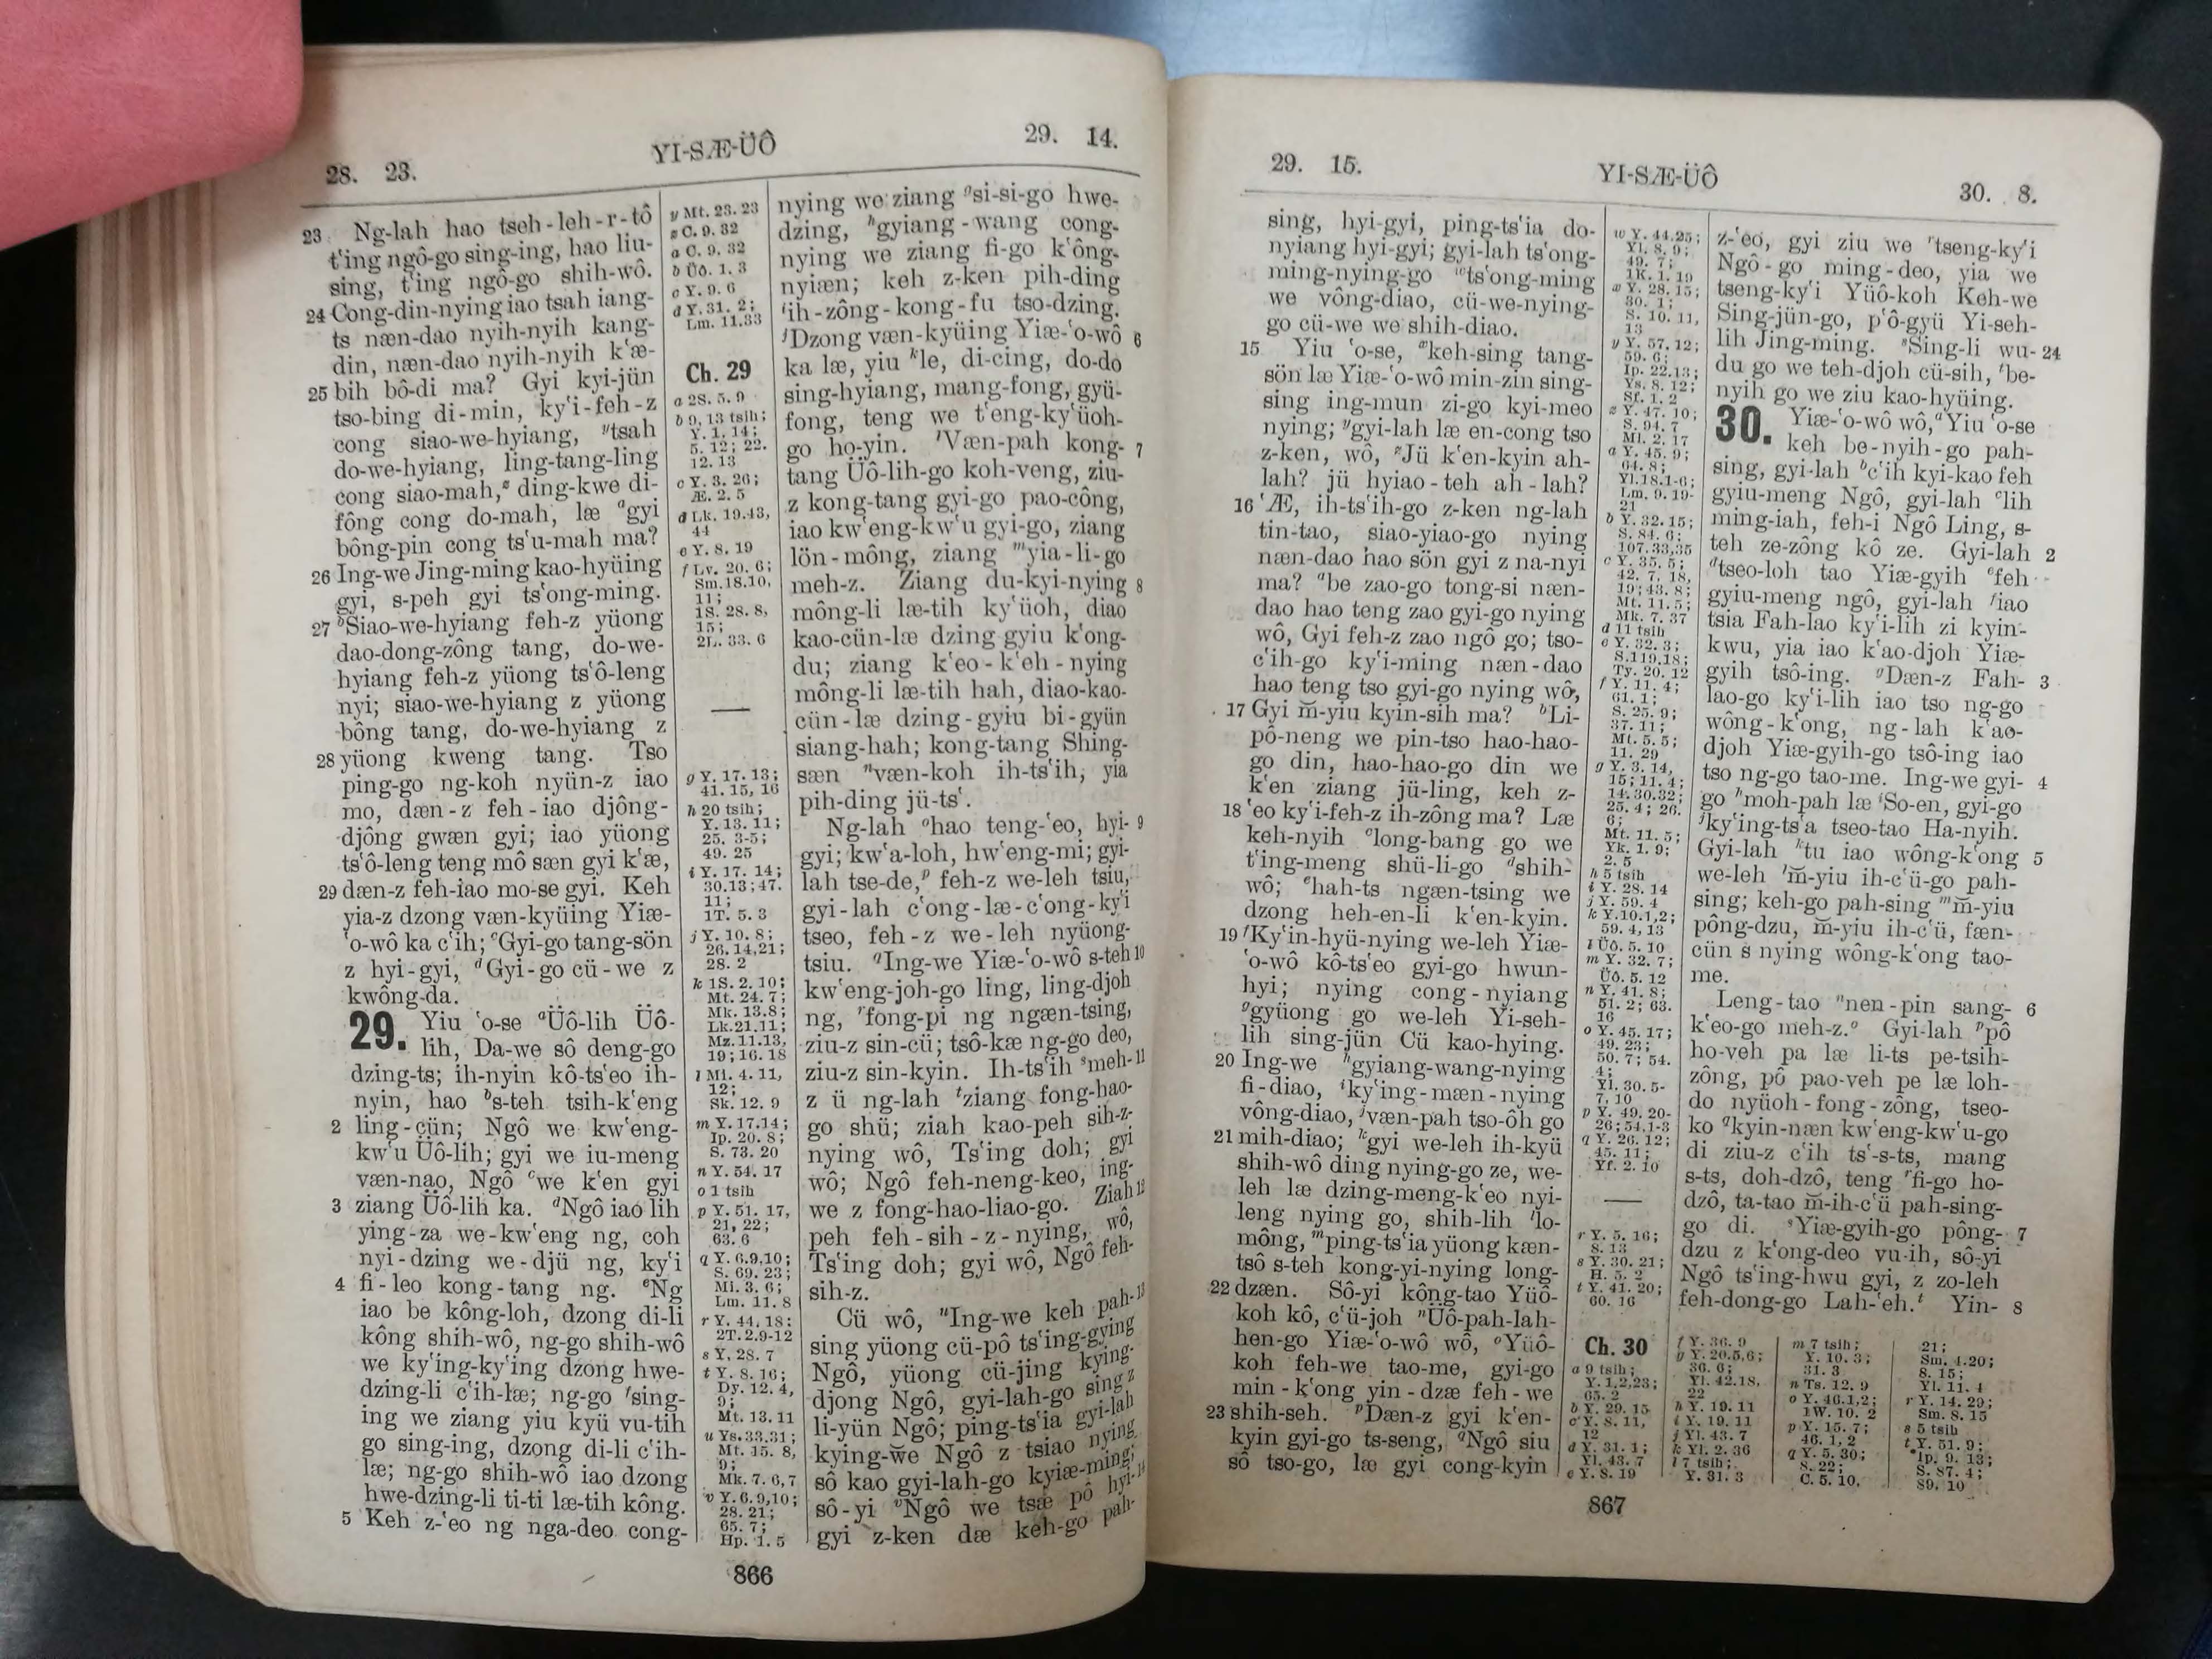 28. 23.
YI-SÆ-ÜÔ
29. 14.
23 Ng-lah hao tseh-leh-r-tô
t'ing ngô-go sing-ing, hao liu-
sing, t'ing ngô-go shih-wô.
24 Cong-din-nying iao tsah iang-
ts næn-dao nyih-nyih kang-
din, næn-dao nyih-nyih k'æ-
25 bih bô-di ma? Gyi kyi-jün
tso-bing di-min, ky'i-feh-z
cong siao-we-hyiang, ytsah
do-we-hyiang, ling-tang-ling
cong siao-mah,z ding-kwe di-
fông cong do-mah, læ agyi
bông-pin cong ts'u-mah ma?
26 Ing-we Jing-ming kao-hyüing
gyi, s-peh gyi ts'ong-ming.
27 bSiao-we-hyiang feh-z yüong
dao-dong-zông tang, do-we-
hyiang feh-z yüong ts'ô-leng
nyi; siao-we-hyiang z yüong
bông tang, do-we-hyiang z
28 yüong kweng tang. Tso
ping-go ng-koh nyün-z iao
mo, dæn-z feh-iao djông-
djông gwæn gyi; iao yüong
ts'ô-leng teng mô sæn gyi k'æ,
29 dæn-z feh-iao mo-se gyi. Keh
yia-z dzong væn-kyüing Yiæ-
'o-wô ka c'ih; cGyi-go tang-sön
z hyi-gyi, dGyi-go cü-we z
kwông-da.
29. Yiu 'o-se aÜô-lih Üô-
lih, Da-we sô deng-go
dzing-ts; ih-nyin kô-ts'eo ih-
nyin, hao bs-teh tsih-k'eng
2 ling-cün; Ngô we kw'eng-
kw'u Üô-lih; gyi we iu-meng
væn-nao, Ngô cwe k'en gyi
3 ziang Üô-lih ka. dNgô iao lih
ying-za we-kw'eng ng, coh
nyi-dzing we-djü ng, ky'i
4 fi-leo kong-tang ng. eNg
iao be kông-loh, dzong di-li
kông shih-wô, ng-go shih-wô
we ky'ing-ky'ing dzong hwe-
dzing-li c'ih-læ; ng-go fsing-
ing we ziang yiu kyü vu-tih
go sing-ing, dzong di-li c'ih-
læ; ng-go shih-wô iao dzong
hwe-dzing-li ti-ti læ-tih kông.
5 Keh z-'eo ng nga-deo cong-
y Mt. 23. 23
z C. 9. 32
a C. 9. 32
b Üô. 1. 3
c Y. 9. 6
d Y. 31. 2;
Lm. 11.33
Ch. 29
a 2S. 5. 9
b 9, 13 tsih;
Y. 1. 14;
5. 12; 22.
12. 13
c Y. 3. 26;
Æ. 2. 5
d Lk. 19.43,
44
e Y. 8. 19
f Lv. 20. 6;
Sm.18.10,
11;
1S. 28. 8,
15;
2L. 33. 6
g Y. 17. 13;
41. 15, 16
h 20 tsih;
Y. 13. 11;
25. 3-5;
49. 25
i Y. 17. 14;
30.13; 47.
11;
1T. 5. 3
j Y. 10. 8;
26. 14,21;
28. 2
k 1S. 2. 10;
Mt. 24. 7;
Mk. 13.8;
Lk.21.11;
Mz.11.13,
19; 16. 18
l Ml. 4. 11,
12;
Sk. 12. 9
m Y.17.14;
Ip. 20. 8;
S. 73. 20
n Y. 54. 17
o 1 tsih
p Y. 51. 17,
21, 22;
63. 6
q Y. 6.9,10;
S. 69. 23;
Mi. 3. 6;
Lm. 11. 8
r Y. 44. 18;
2T. 2.9-12
s Y. 28. 7
t Y. 8. 16;
Dy. 12. 4,
9;
Mt. 13. 11
u Ys.33.31;
Mt. 15. 8,
9;
Mk. 7. 6,7
v Y. 6. 9,10;
28. 21;
65. 7;
Hp. 1. 5
nying we ziang gsi-si-go hwe-
dzing, hgyiang-wang cong-
nying we ziang fi-go k'ông-
nyiæn; keh z-ken pih-ding
iih-zông-kong-fu tso-dzing.
jDzong væn-kyüing Yiæ-'o-wô 6
ka læ, yiu kle, di-cing, do-do
sing-hyiang, mang-fong, gyü-
fong, teng we t'eng-ky'üoh-
go ho-yin. lVæn-pah kong- 7
tang Üô-lih-go koh-veng, ziu-
z kong-tang gyi-go pao-công,
iao kw'eng-kw'u gyi-go, ziang
lön-mông, ziang myia-li-go
meh-z. Ziang du-kyi-nying 8
mông-li læ-tih ky'üoh, diao
kao-cün-læ dzing-gyiu k'ong-
du; ziang k'eo-k'eh-nying
mông-li læ-tih hah, diao-kao-
cün-læ dzing-gyiu bi-gyün
siang-hah; kong-tang Shing-
sæn nvæn-koh ih-ts'ih, yia
pih-ding jü-ts'.
Ng-lah ohao teng-'eo, hyi- 9
gyi; kw'a-loh, hw'eng-mi; gyi-
lah tse-de,p feh-z we-leh tsiu,
gyi-lah c'ong-læ-c'ong-ky'i
tseo, feh-z we-leh nyüong-
tsiu. qIng-we Yiæ-'o-wô s-teh 10
kw'eng-joh-go ling, ling-djoh
ng, rfong-pi ng ngæn-tsing,
ziu-z sin-cü; tsô-kæ ng-go deo,
ziu-z sin-kyin. Ih-ts'ih smeh- 11
z ü ng-lah tziang fong-hao-
go shü; ziah kao-peh sih-z-
nying wô, Ts'ing doh; gyi
wô; Ngô feh-neng-keo, ing-
we z fong-hao-liao-go. Ziah 12
peh feh-sih-z-nying, wô,
Ts'ing doh; gyi wô, Ngô feh-
sih-z.
Cü wô, uIng-we keh pah- 13
sing yüong cü-pô ts'ing-gying
Ngô, yüong cü-jing kying-
djong Ngô, gyi-lah-go sing z
li-yün Ngô; ping-ts'ia gyi-lah
kying-we Ngô z tsiao nying
sô kao gyi-lah-go kyiæ-ming;
sô-yi vNgô we tsæ pô hyi- 14
gyi z-ken dæ keh-go pah-
866
29. 15.
YI-SÆ-ÜÔ
30. 8.
sing, hyi-gyi, ping-ts'ia do-
nyiang hyi-gyi; gyi-lah ts'ong-
ming-nying-go wts'ong-ming
we vông-diao, cü-we-nying-
go cü-we we shih-diao.
15 Yiu 'o-se, xkeh-sing tang-
sön læ Yiæ-'o-wô min-zin sing-
sing ing-mun zi-go kyi-meo
nying; ygyi-lah læ en-cong tso
z-ken, wô, zJü k'en-kyin ah-
lah? jü hyiao-teh ah-lah?
16 'Æ, ih-ts'ih-go z-ken ng-lah
tin-tao, siao-yiao-go nying
næn-dao hao sön gyi z na-nyi
ma? abe zao-go tong-si næn-
dao hao teng zao gyi-go nying
wô, Gyi feh-z zao ngô go; tso-
c'ih-go ky'i-ming næn-dao
hao teng tso gyi-go nying wô,
17 Gyi m̆-yiu kyin-sih ma? bLi-
pô-neng we pin-tso hao-hao-
go din, hao-hao-go din we
k'en ziang jü-ling, keh z-
18 'eo ky'i-feh-z ih-zông ma? Læ
keh-nyih clong-bang go we
t'ing-meng shü-li-go dshih-
wô; ehah-ts ngæn-tsing we
dzong heh-en-li k'en-kyin.
19 fKy'in-hyü-nying we-leh Yiæ-
'o-wô kô-ts'eo gyi-go hwun-
hyi; nying cong-nyiang
ggyüong go we-leh Yi-seh-
lih sing-jün Cü kao-hying.
20 Ing-we hgyiang-wang-nying
fi-diao, iky'ing-mæn-nying
vông-diao, jvæn-pah tso-ôh go
21 mih-diao; kgyi we-leh ih-kyü
shih-wô ding nying-go ze, we-
leh læ dzing-meng-k'eo nyi-
leng nying go, shih-lih llo-
mông, mping-ts'ia yüong kæn-
tsô s-teh kong-yi-nying long-
22 dzæn. Sô-yi kông-tao Yüô-
koh kô, c'ü-joh nÜô-pah-lah-
hen-go Yiæ-'o-wô wô, oYüô-
koh feh-we tao-me, gyi-go
min-k'ong yin-dzæ feh-we
23 shih-seh. pDæn-z gyi k'en-
kyin gyi-go ts-seng, qNgô siu
sô tso-go, læ gyi cong-kyin
w Y. 44.25;
Yl. 8. 9;
49. 7;
1K. 1. 19
x Y. 28. 15;
30. 1;
S. 10. 11,
13
y Y. 57. 12;
59. 6;
Ip. 22.13;
Ys. 8. 12;
Sf. 1. 2
z Y. 47. 10;
S. 94. 7
Ml. 2. 17
a Y. 45. 9;
64. 8;
Yl.18.1-6;
Lm. 9. 19-
21
b Y. 32. 15;
S. 84. 6;
107.33,35
c Y. 35. 5;
42. 7, 18,
19; 43. 8;
Mt. 11. 5;
Mk. 7. 37
d 11 tsih
e Y. 32. 3;
S.119.18;
Ty. 20. 12
f Y. 11. 4;
61. 1;
S. 25. 9;
37. 11;
Mt. 5. 5;
11. 29
g Y. 3. 14,
15; 11. 4;
14.30.32;
25. 4; 26.
6;
Mt. 11. 5;
Yk. 1. 9;
2. 5
h 5 tsih
i Y. 28. 14
j Y. 59. 4
k Y.10.1,2;
59. 4, 13
l Üô. 5. 10
m Y. 32. 7;
Üô. 5. 12
n Y. 41. 8;
51. 2; 63.
16
o Y. 45. 17;
49. 23;
50. 7; 54.
4;
Yl. 30. 5-
7, 10
p Y. 49. 20-
26; 54.1-3
q Y. 26. 12;
45. 11;
Yf. 2. 10
r Y. 5. 16;
8. 13
s Y. 30. 21;
H. 5. 2
t Y. 41. 20;
60. 16
z-'eo, gyi ziu we rtseng-ky'i
Ngô-go ming-deo, yia we
tseng-ky'i Yüô-koh Keh-we
Sing-jün-go, p'ô-gyü Yi-seh-
lih Jing-ming. sSing-li wu- 24
du go we teh-djoh cü-sih, tbe-
nyih go we ziu kao-hyüing.
30. Yiæ-'o-wô wô, aYiu 'o-se
keh be-nyih-go pah-
sing, gyi-lah bc'ih kyi-kao feh
gyiu-meng Ngô, gyi-lah clih
ming-iah, feh-i Ngô Ling, s-
teh ze-zông kô ze. Gyi-lah 2
dtseo-loh tao Yiæ-gyih efeh
gyiu-meng ngô, gyi-lah fiao
tsia Fah-lao ky'i-lih zi kyin-
kwu, yia iao k'ao-djoh Yiæ-
gyih tsô-ing. gDæn-z Fah- 3
lao-go ky'i-lih iao tso ng-go
wông-k'ong, ng-lah k'ao-
djoh Yiæ-gyih-go tsô-ing iao
tso ng-go tao-me. Ing-we gyi- 4
go hmoh-pah læ iSo-en, gyi-go
jky'ing-ts'a tseo-tao Ha-nyih.
Gyi-lah ktu iao wông-k'ong 5
we-leh lm̆-yiu ih-c'ü-go pah-
sing; keh-go pah-sing mm̆-yiu
pông-dzu, m̆-yiu ih-c'ü, fæn-
cün s nying wông-k'ong tao-
me.
Leng-tao nnen-pin sang- 6
k'eo-go meh-z.o Gyi-lah ppô
ho-veh pa læ li-ts pe-tsih-
zông, pô pao-veh pe læ loh-
do nyüoh-fong-zông, tseo-
ko qkyin-næn kw'eng-kw'u-go
di ziu-z c'ih ts'-s-ts, mang
s-ts, doh-dzô, teng rfi-go ho-
dzô, ta-tao m̆-ih-c'ü pah-sing-
go di. sYiæ-gyih-go pông- 7
dzu z k'ong-deo vu-ih, sô-yi
Ngô ts'ing-hwu gyi, z zo-leh
feh-dong-go Lah-'eh.t Yin- 8
Ch. 30
a 9 tsih;
Y. 1,2,23;
65. 2
b Y. 29. 15
c Y. 8. 11,
12
d Y. 31. 1;
Yl. 43. 7
e Y. 8. 19
f Y. 36. 9
g Y. 20.5,6;
36. 6;
Yl. 42.18,
22
h Y. 19. 11
i Y. 19. 11
j Yl. 43. 7
k Yl. 2. 36
l 7 tsih;
Y. 31. 3
m 7 tsih;
Y. 10. 3;
31. 3
n Ts. 12. 9
o Y. 46.1,2;
1W. 10. 2
p Y. 15. 7;
46. 1, 2
q Y. 5. 30;
8. 22;
C. 5. 10,
21;
Sm. 4.20;
8. 15;
Yl. 11. 4
r Y. 14. 29;
Sm. 8. 15
s 5 tsih
t Y. 51. 9;
Ip. 9. 13;
S. 87. 4;
89. 10
867